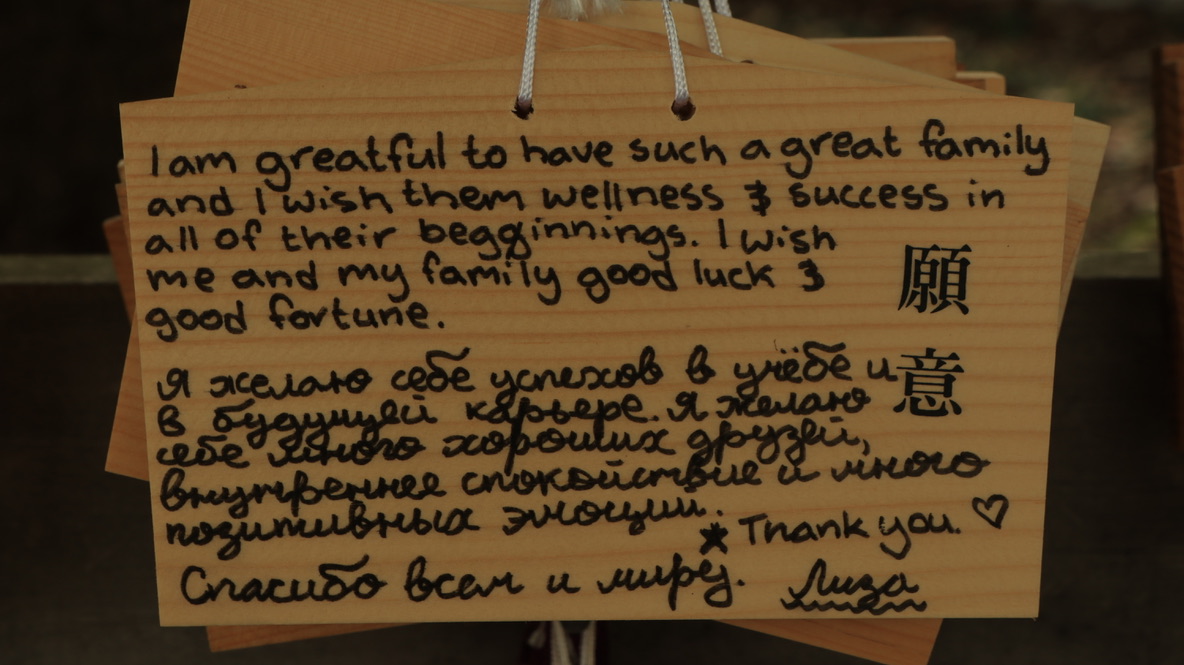 I am greatful to have such a great family
and I wish them wellness & success in
all of their begginnings. I wish
me and my family good luck &
good fortune.
願意
Я желаю себе успехов в учёбе и
в будущей карьере. Я желаю
себе много хороших друзей,
внутреннее спокойствие и много
позитивных эмоций.
* Thank you. ♡
Спасибо всем и миру. Лиза